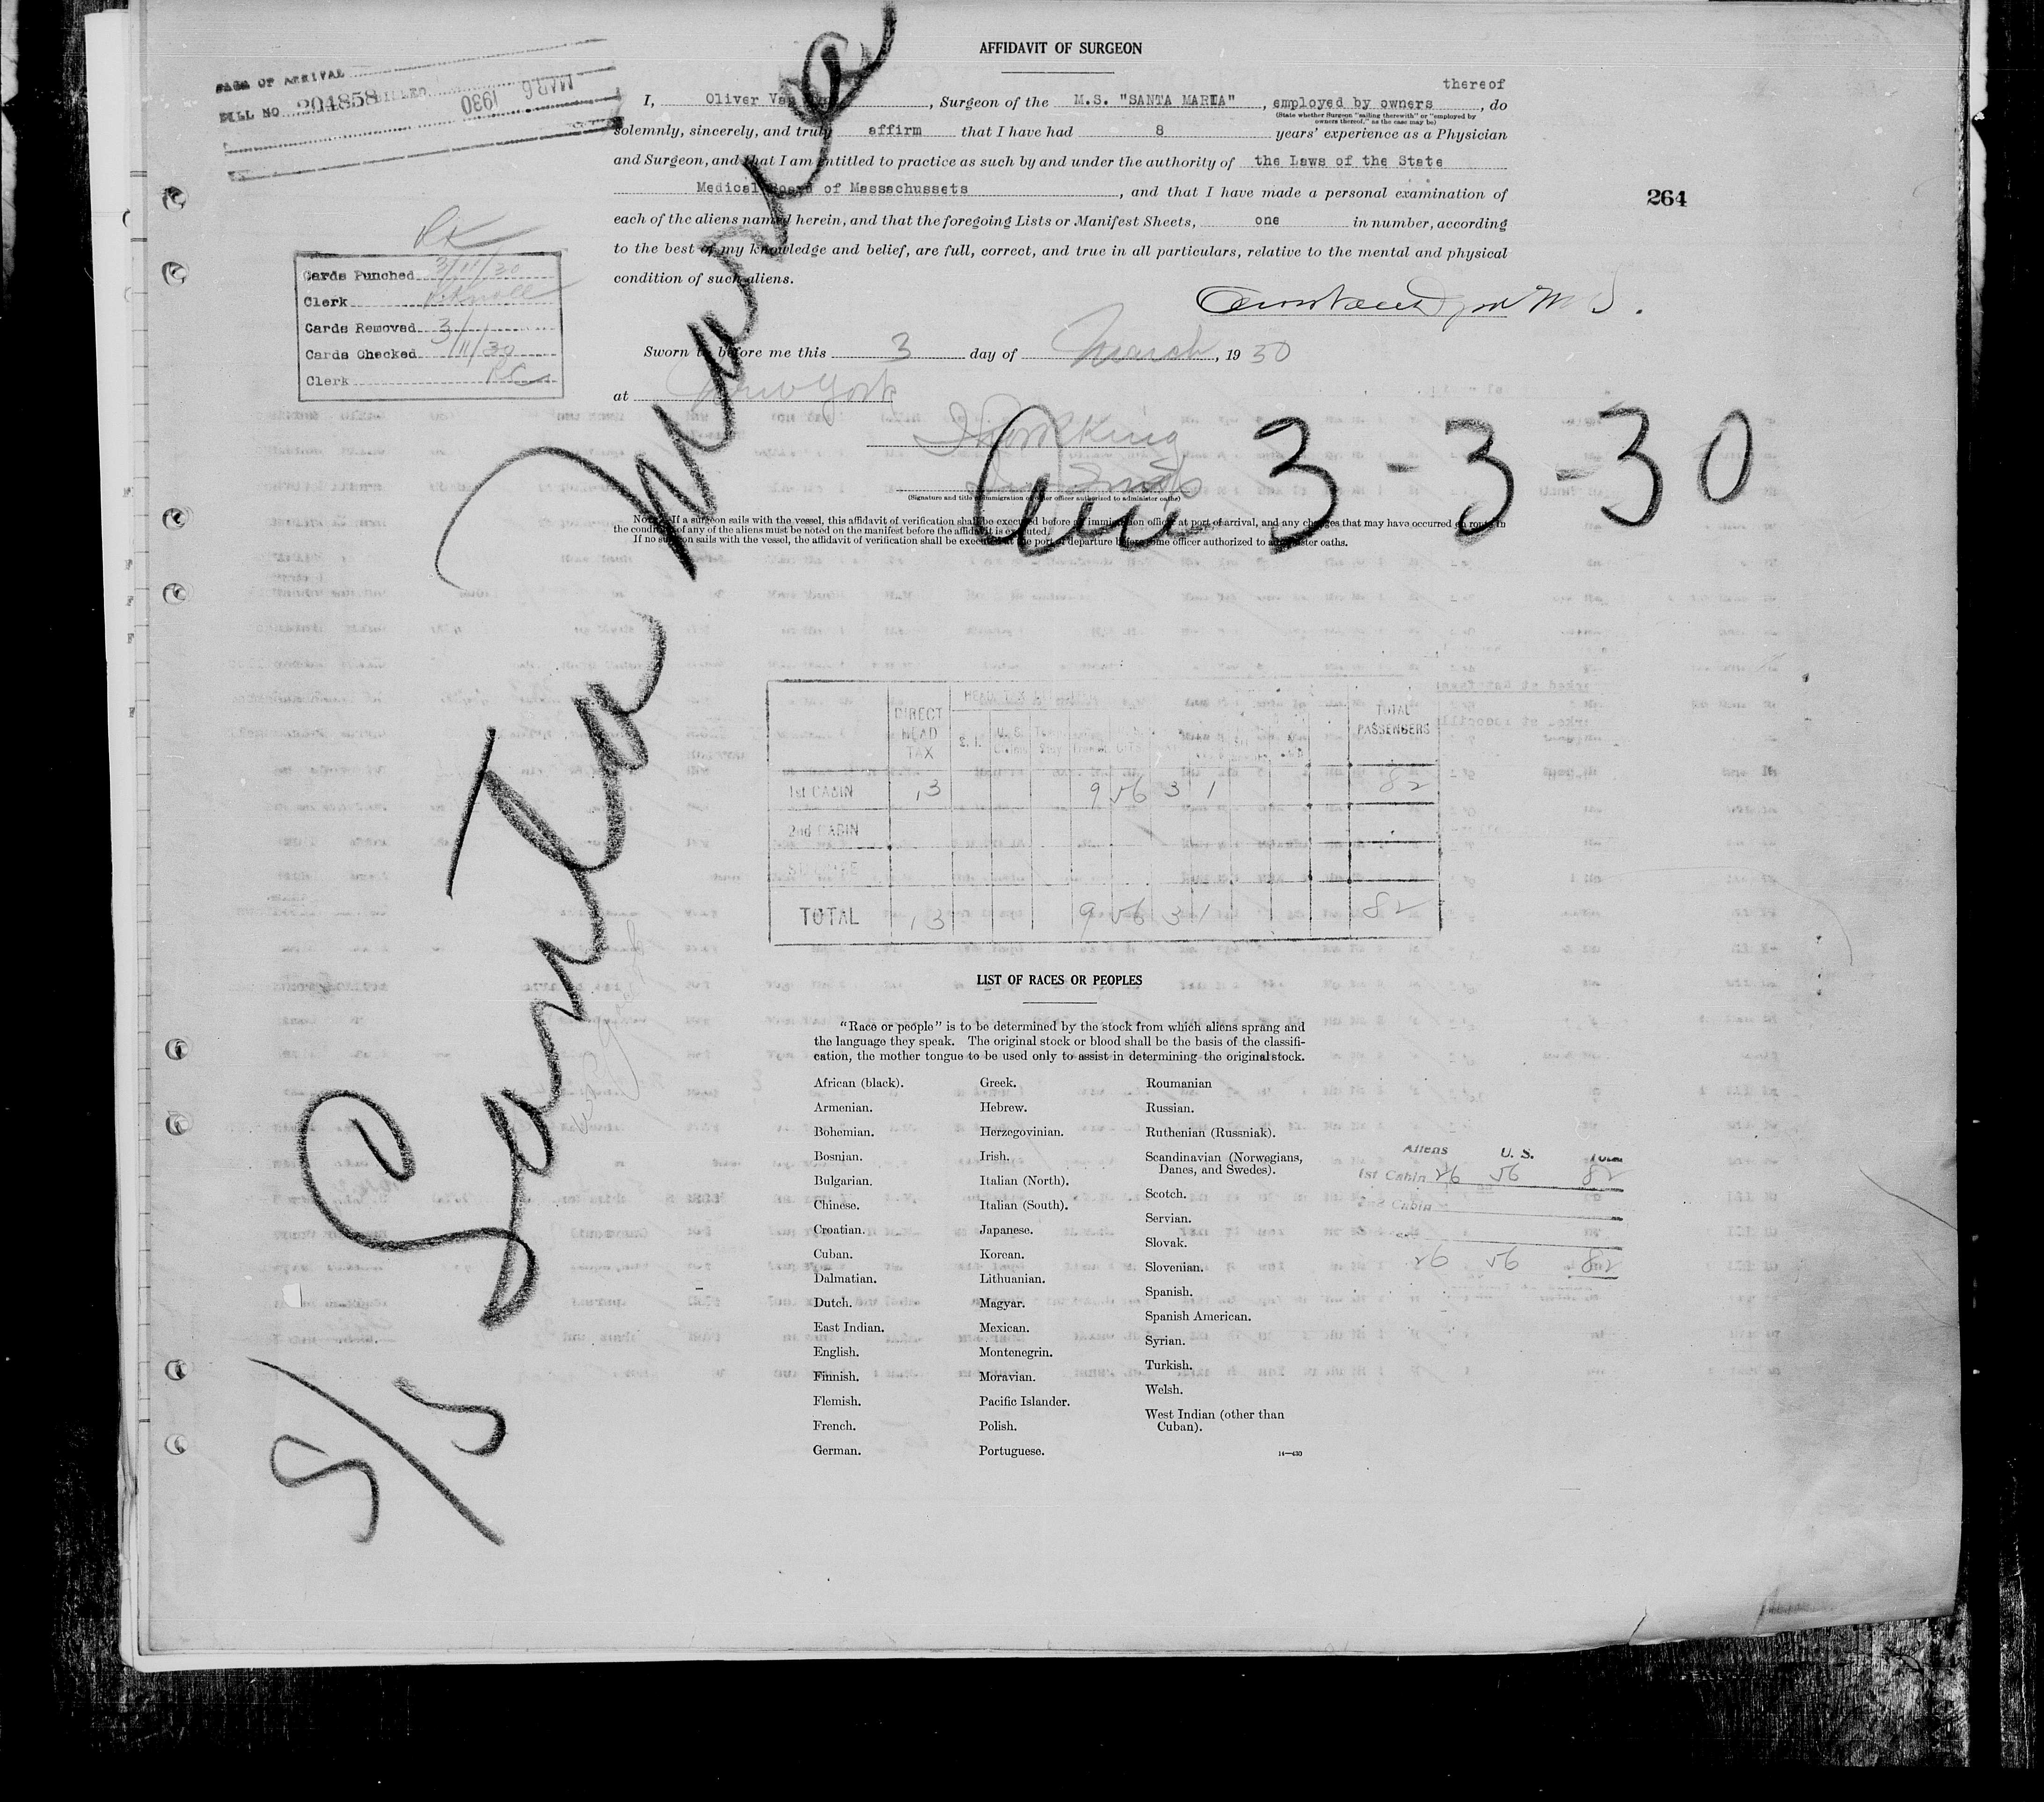 AFFIDAVIT OF SURGEON
OF ARRIVAL
BILL NO 204858 BILLED MAR 6 1930
thereof
I, Oliver Van , Surgeon of the M.S. "SANTA MARIA", employed by owners, do
(State whether Surgeon "sailing therewith" or "employed by
owners thereof," as the case may be)
solemnly, sincerely, and truly affirm that I have had 8 years' experience as a Physician
and Surgeon, and that I am entitled to practice as such by and under the authority of the Laws of the State
Medical Board of Massachussets, and that I have made a personal examination of
264
each of the aliens named herein, and that the foregoing Lists or Manifest Sheets, one in number, according
to the best of my knowledge and belief, are full, correct, and true in all particulars, relative to the mental and physical
condition of such aliens.
OK
Cards Punched 3/11/30
Clerk
Cards Removed 3/
Cards Checked 11/30
Clerk
M D.
Sworn to before me this 3 day of March, 1930
at New York
King
(Signature and title of immigration or other officer authorized to administer oaths)
Arr 3-3-30
NOTE.—If a surgeon sails with the vessel, this affidavit of verification shall be executed before an immigration officer at port of arrival, and any changes that may have occurred en route in
the condition of any of the aliens must be noted on the manifest before the affidavit is executed.
If no surgeon sails with the vessel, the affidavit of verification shall be executed at the port of departure before some officer authorized to administer oaths.
S/S Santa Maria
DIRECT HEAD TAX
HEAD TAX
S. I. U. S.
TOTAL PASSENGERS
1st CABIN 13 9 56 3 1 82
2nd CABIN
TOTAL 13 9 56 3 1 82
LIST OF RACES OR PEOPLES
"Race or people" is to be determined by the stock from which aliens sprang and
the language they speak. The original stock or blood shall be the basis of the classifi-
cation, the mother tongue to be used only to assist in determining the original stock.
African (black).
Armenian.
Bohemian.
Bosnian.
Bulgarian.
Chinese.
Croatian.
Cuban.
Dalmatian.
Dutch.
East Indian.
English.
Finnish.
Flemish.
French.
German.
Greek.
Hebrew.
Herzegovinian.
Irish.
Italian (North).
Italian (South).
Japanese.
Korean.
Lithuanian.
Magyar.
Mexican.
Montenegrin.
Moravian.
Pacific Islander.
Polish.
Portuguese.
Roumanian
Russian.
Ruthenian (Russniak).
Scandinavian (Norwegians,
Danes, and Swedes).
Scotch.
Servian.
Slovak.
Slovenian.
Spanish.
Spanish American.
Syrian.
Turkish.
Welsh.
West Indian (other than
Cuban).
14—430
Aliens U. S. Total
1st Cabin 26 56 82
2nd Cabin
26 56 82